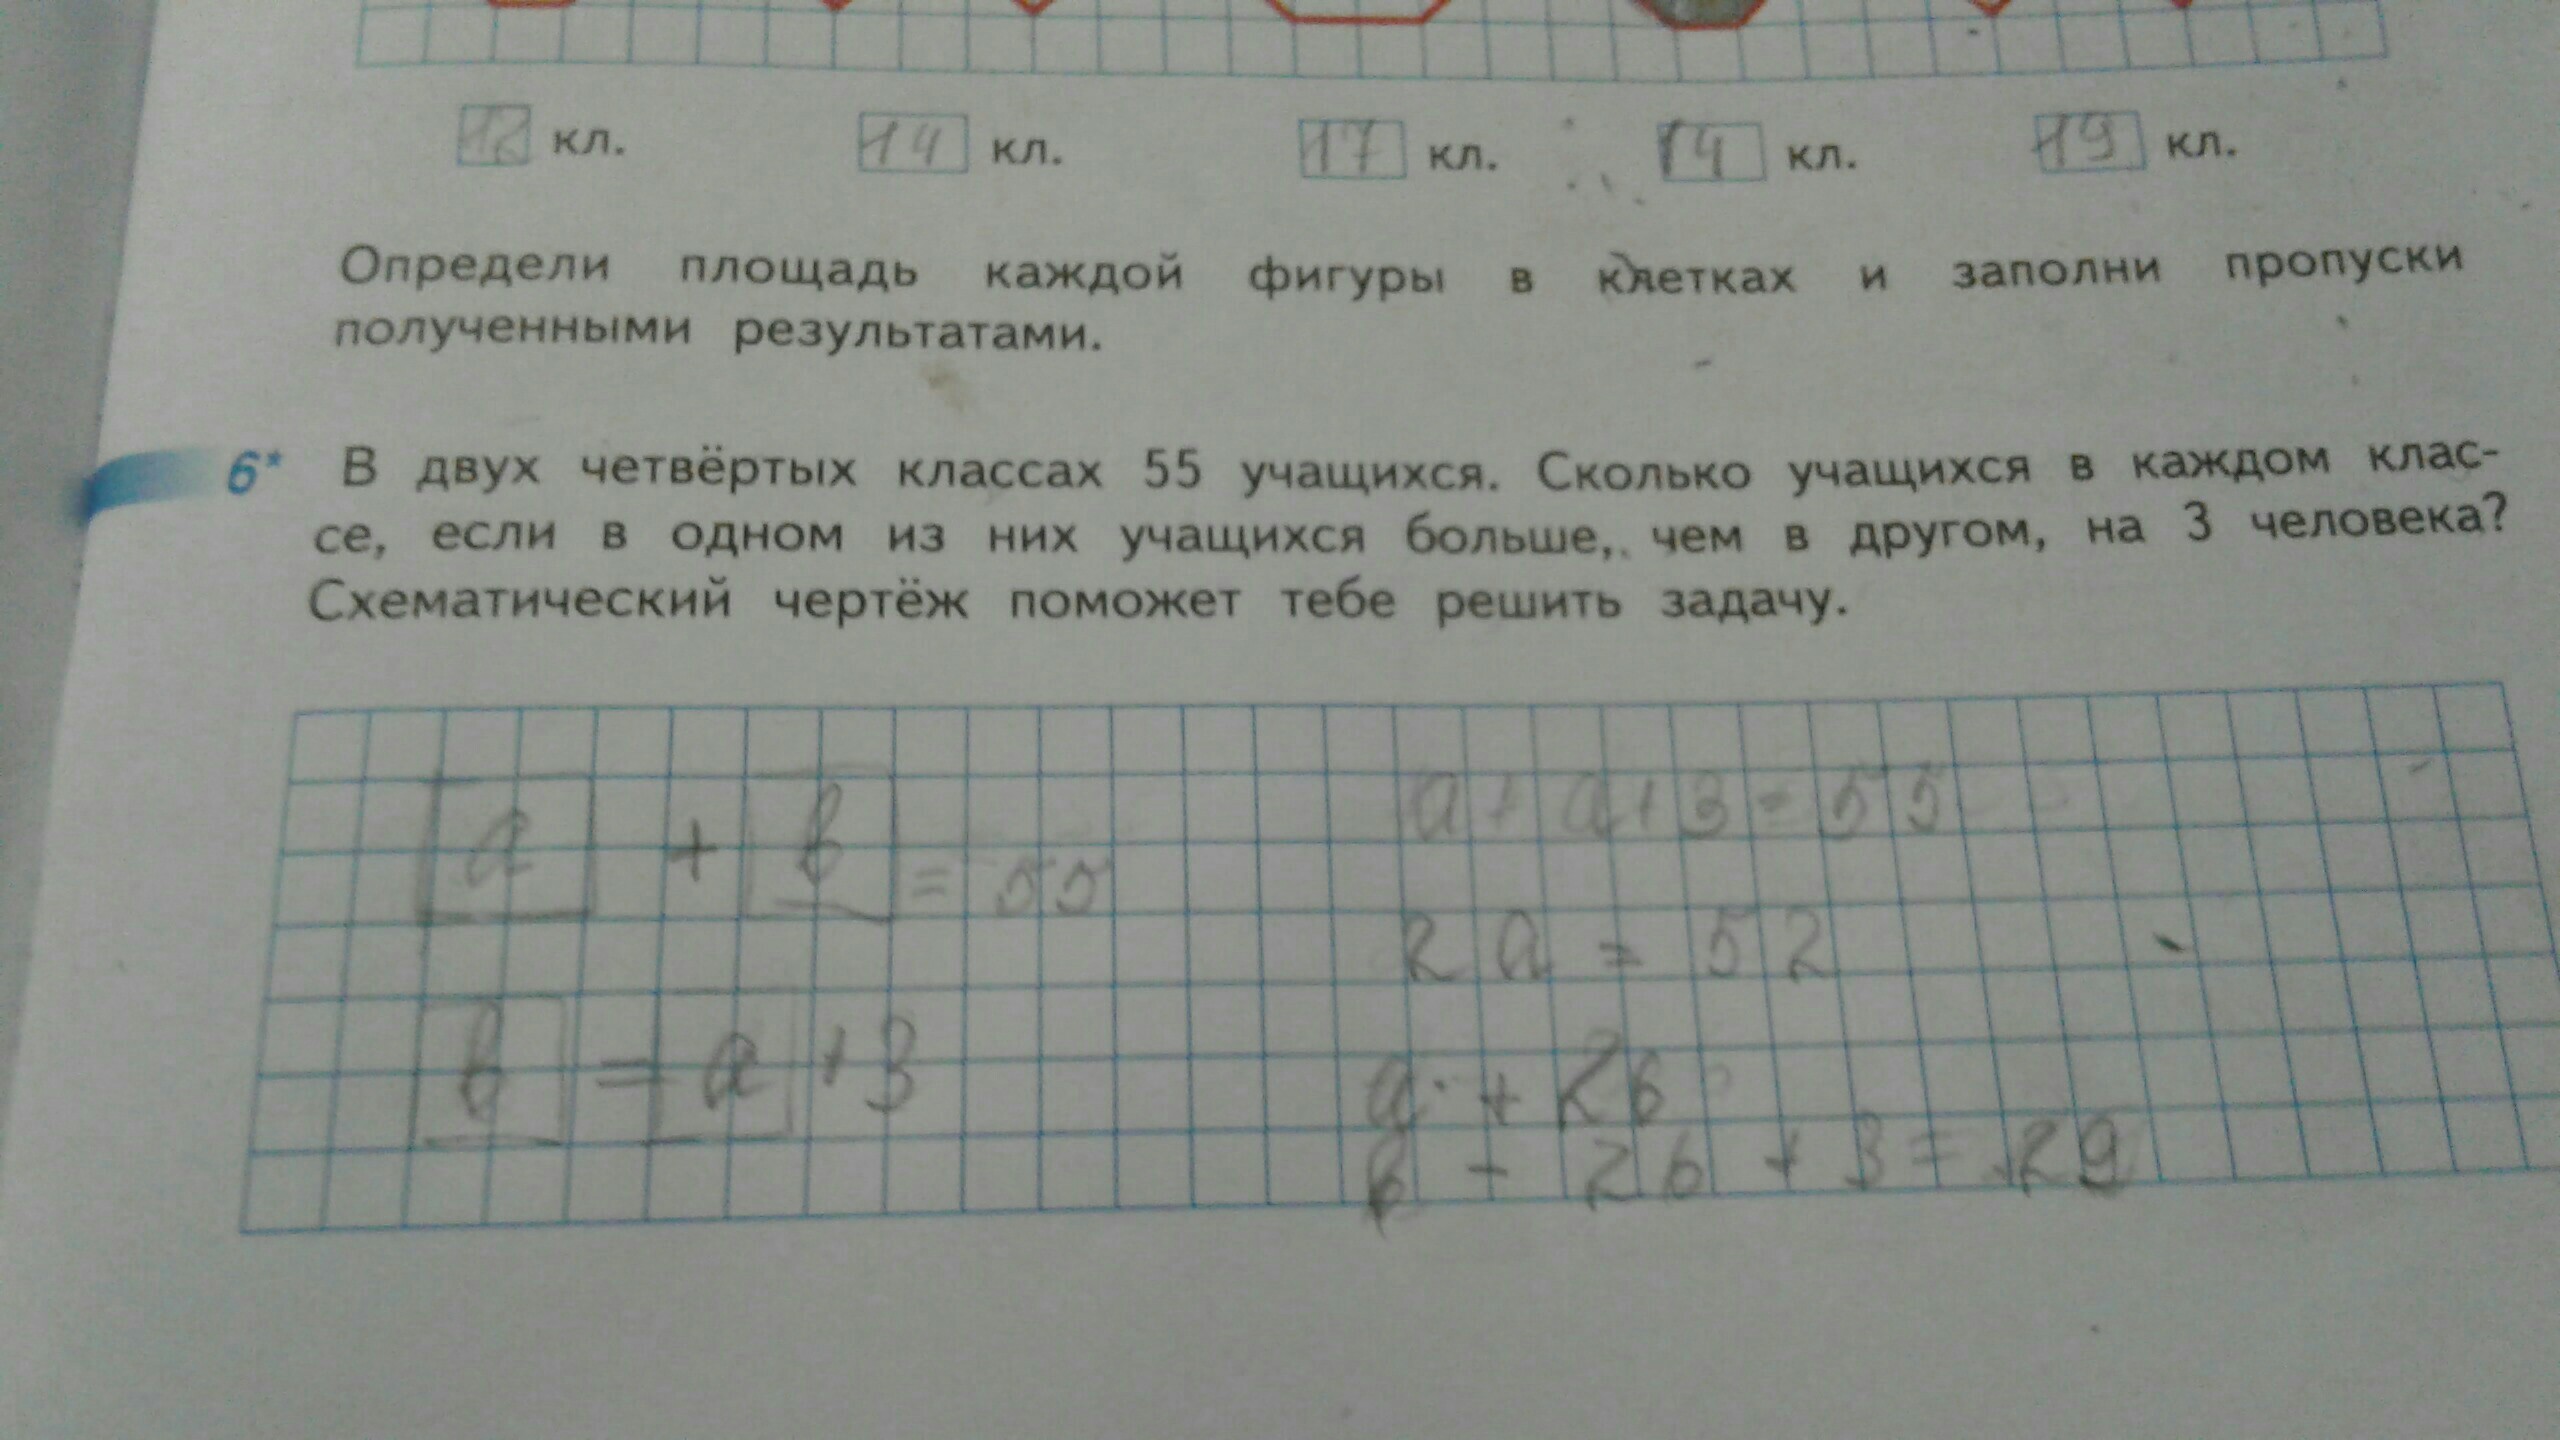 12 кл. 14 кл. 17 кл. 14 кл. 19 кл.
Определи площадь каждой фигуры в клетках и заполни пропуски
полученными результатами.
6* В двух четвёртых классах 55 учащихся. Сколько учащихся в каждом клас-
се, если в одном из них учащихся больше, чем в другом, на 3 человека?
Схематический чертёж поможет тебе решить задачу.
a + b = 55
b = a + 3
a + a + 3 = 55
2a = 52
a + 26
b - 26 + 3 = 29